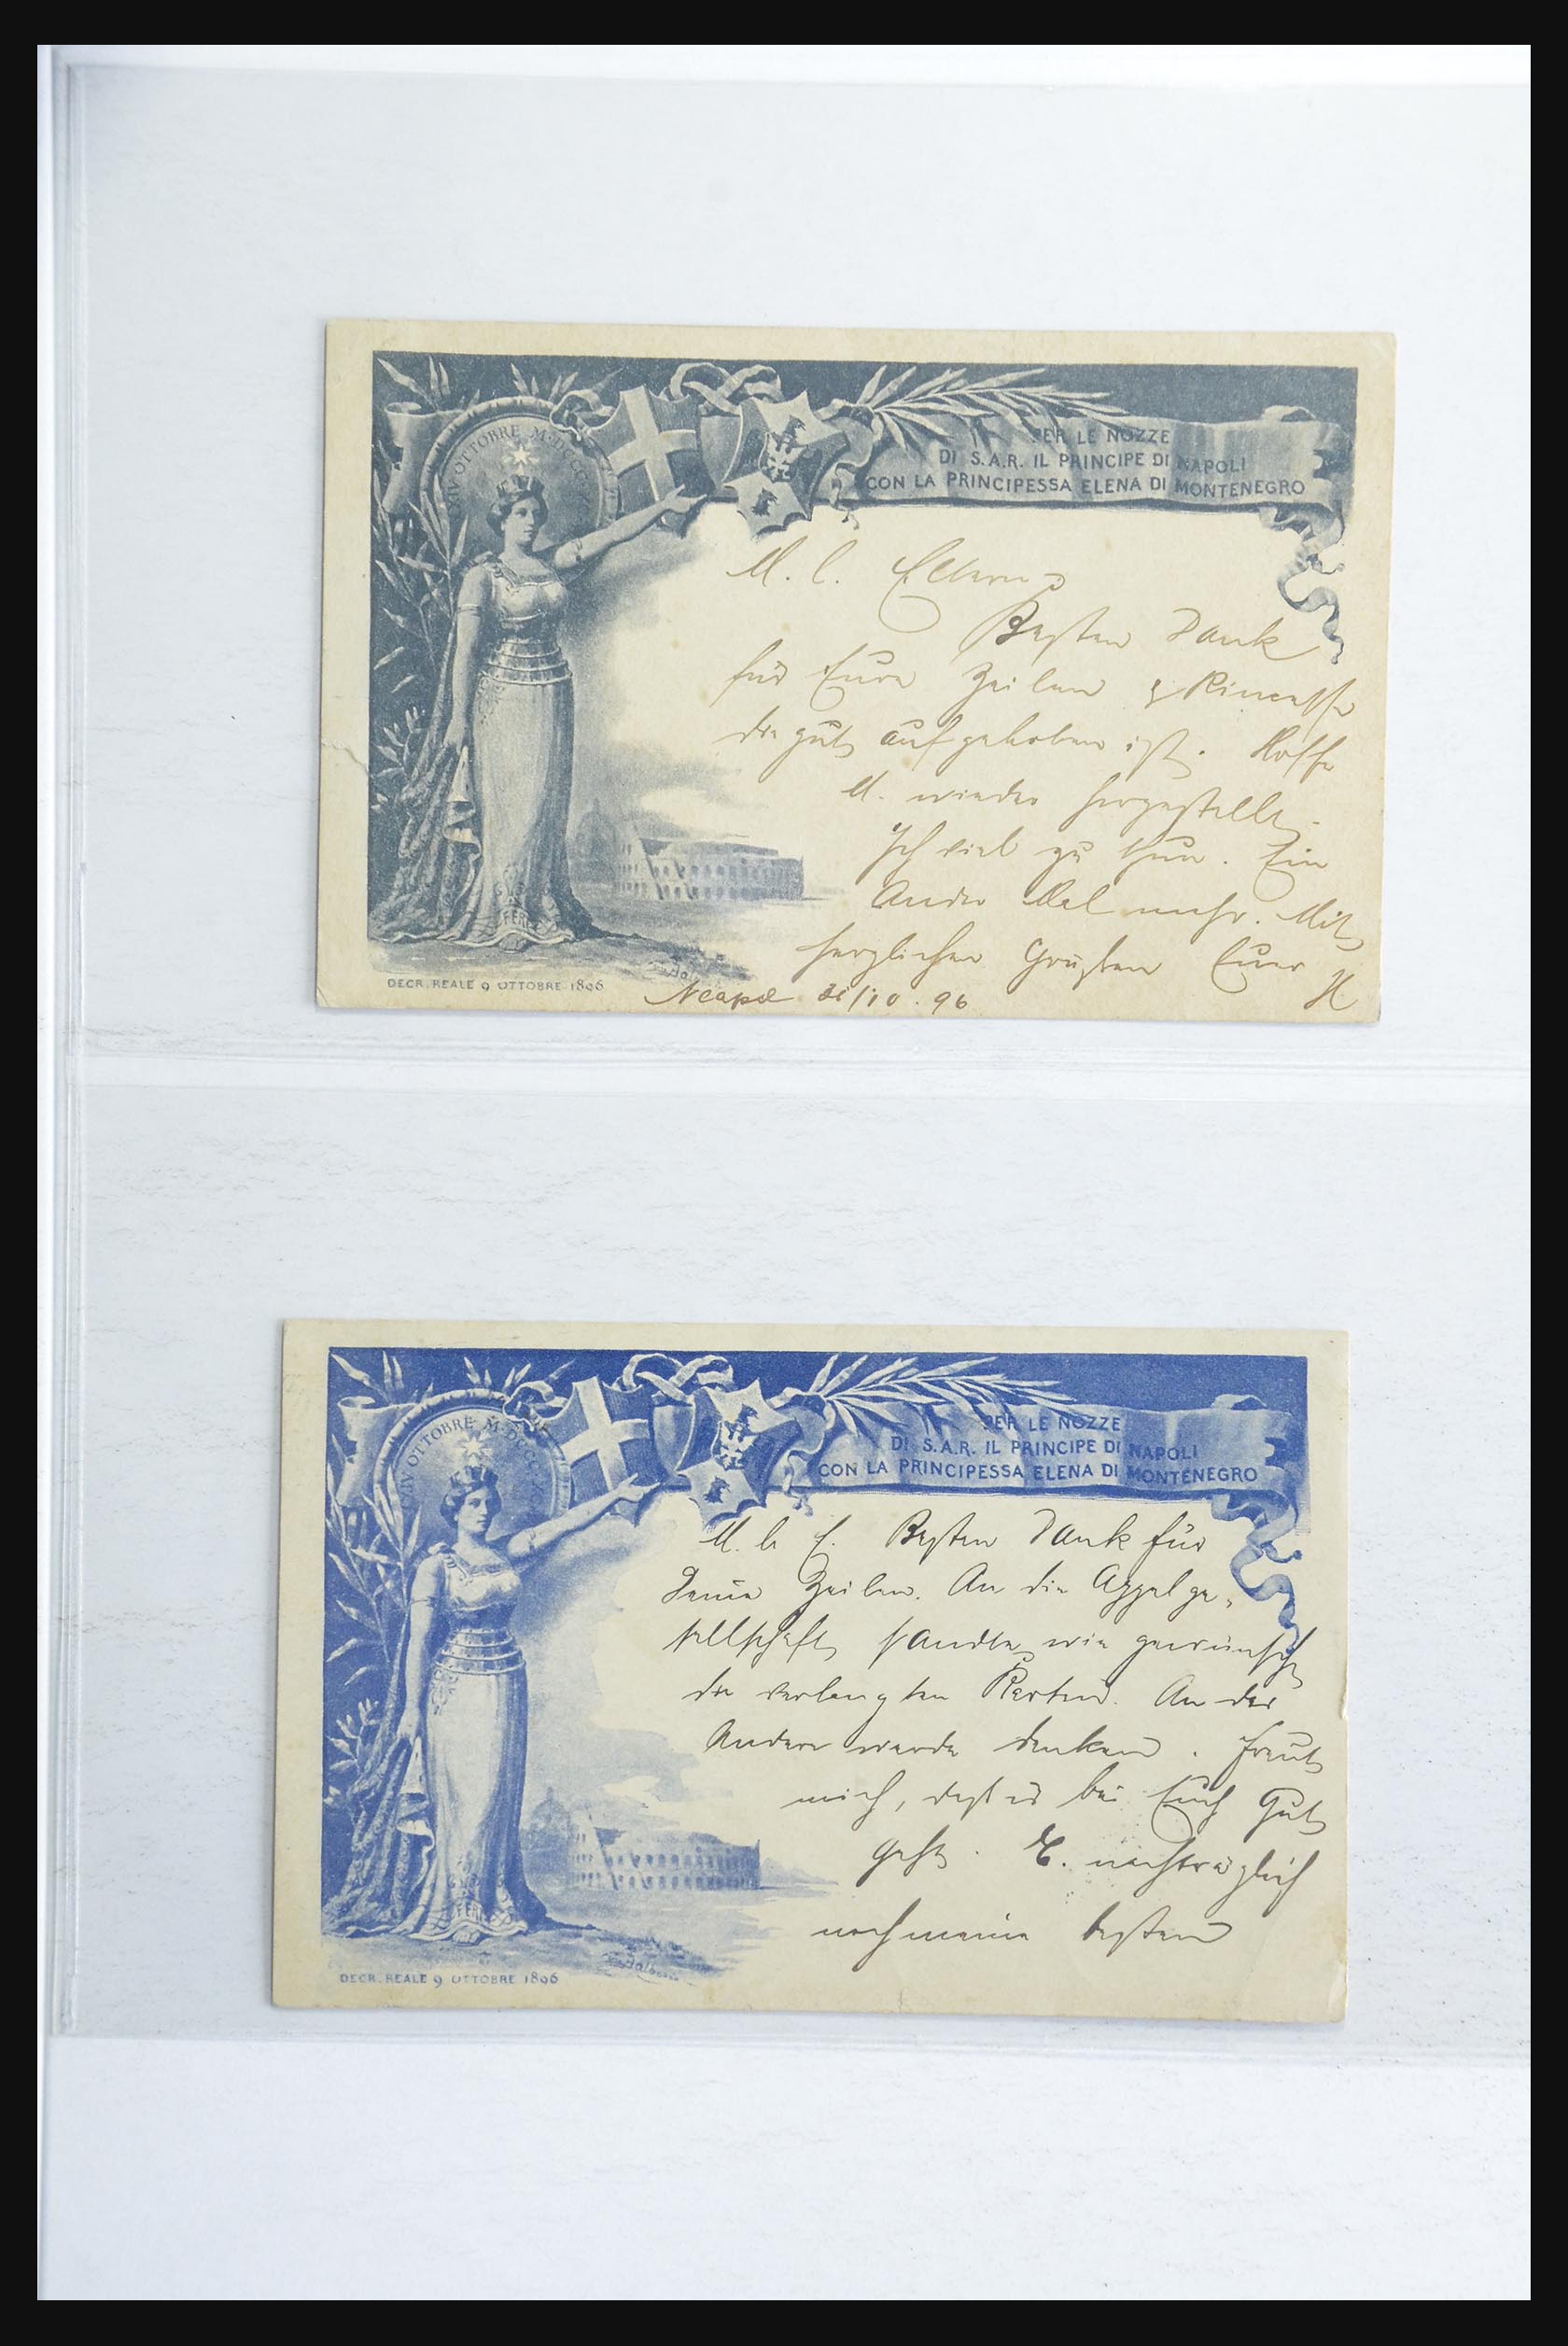 XXIV OTTOBRE M·DCCC
PER LE NOZZE
DI S.A.R. IL PRINCIPE DI NAPOLI
CON LA PRINCIPESSA ELENA DI MONTENEGRO
M. l. Eltern
Besten Dank
für Eure Zeilen & Rimesse
die gut aufgehoben ist. Hoffe
M. wieder hergestellt.
Ich viel zu thun. Ein
Ander Mal mehr. Mit
herzlichen Grüßen Euer
H
Neapel 31/10. 96
FERT
DECR. REALE 9 OTTOBRE 1896
XXIV OTTOBRE M·DCCC
PER LE NOZZE
DI S.A.R. IL PRINCIPE DI NAPOLI
CON LA PRINCIPESSA ELENA DI MONTENEGRO
M. l. E. Besten Dank für
Deine Zeilen. An die
sellschaft sandte wie gewünscht
die verlangten Karten. An das
Andere werde denken. Freut
mich, daß es bei Euch Gut
geht. E. nachträglich
noch meine besten
FERT
DECR. REALE 9 OTTOBRE 1896